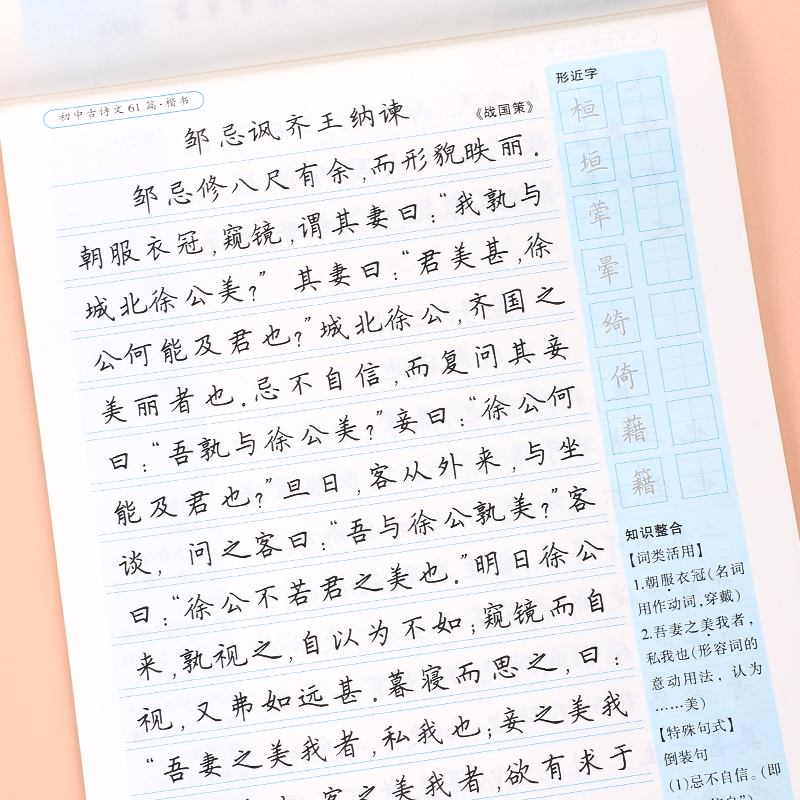 初中古诗文61篇·楷书
邹忌讽齐王纳谏
《战国策》
邹忌修八尺有余,而形貌昳丽.
朝服衣冠,窥镜,谓其妻曰:“我孰与
城北徐公美?” 其妻曰:“君美甚,徐
公何能及君也?”城北徐公,齐国之
美丽者也.忌不自信,而复问其妾
曰:“吾孰与徐公美?”妾曰:“徐公何
能及君也?”旦日,客从外来,与坐
谈, 问之客曰:“吾与徐公孰美?”客
曰:“徐公不若君之美也.”明日徐公
来,孰视之,自以为不如;窥镜而自
视,又弗如远甚.暮寝而思之,曰:
“吾妻之美我者,私我也;妾之美我
客之美我者,欲有求于
形近字
桓
垣
荤
晕
绮
倚
藉
籍
知识整合
【词类活用】
1.朝服衣冠(名词
用作动词,穿戴)
2.吾妻之美我者,
私我也(形容词的
意动用法, 认为
……美)
【特殊句式】
倒装句
(1)忌不自信。(即